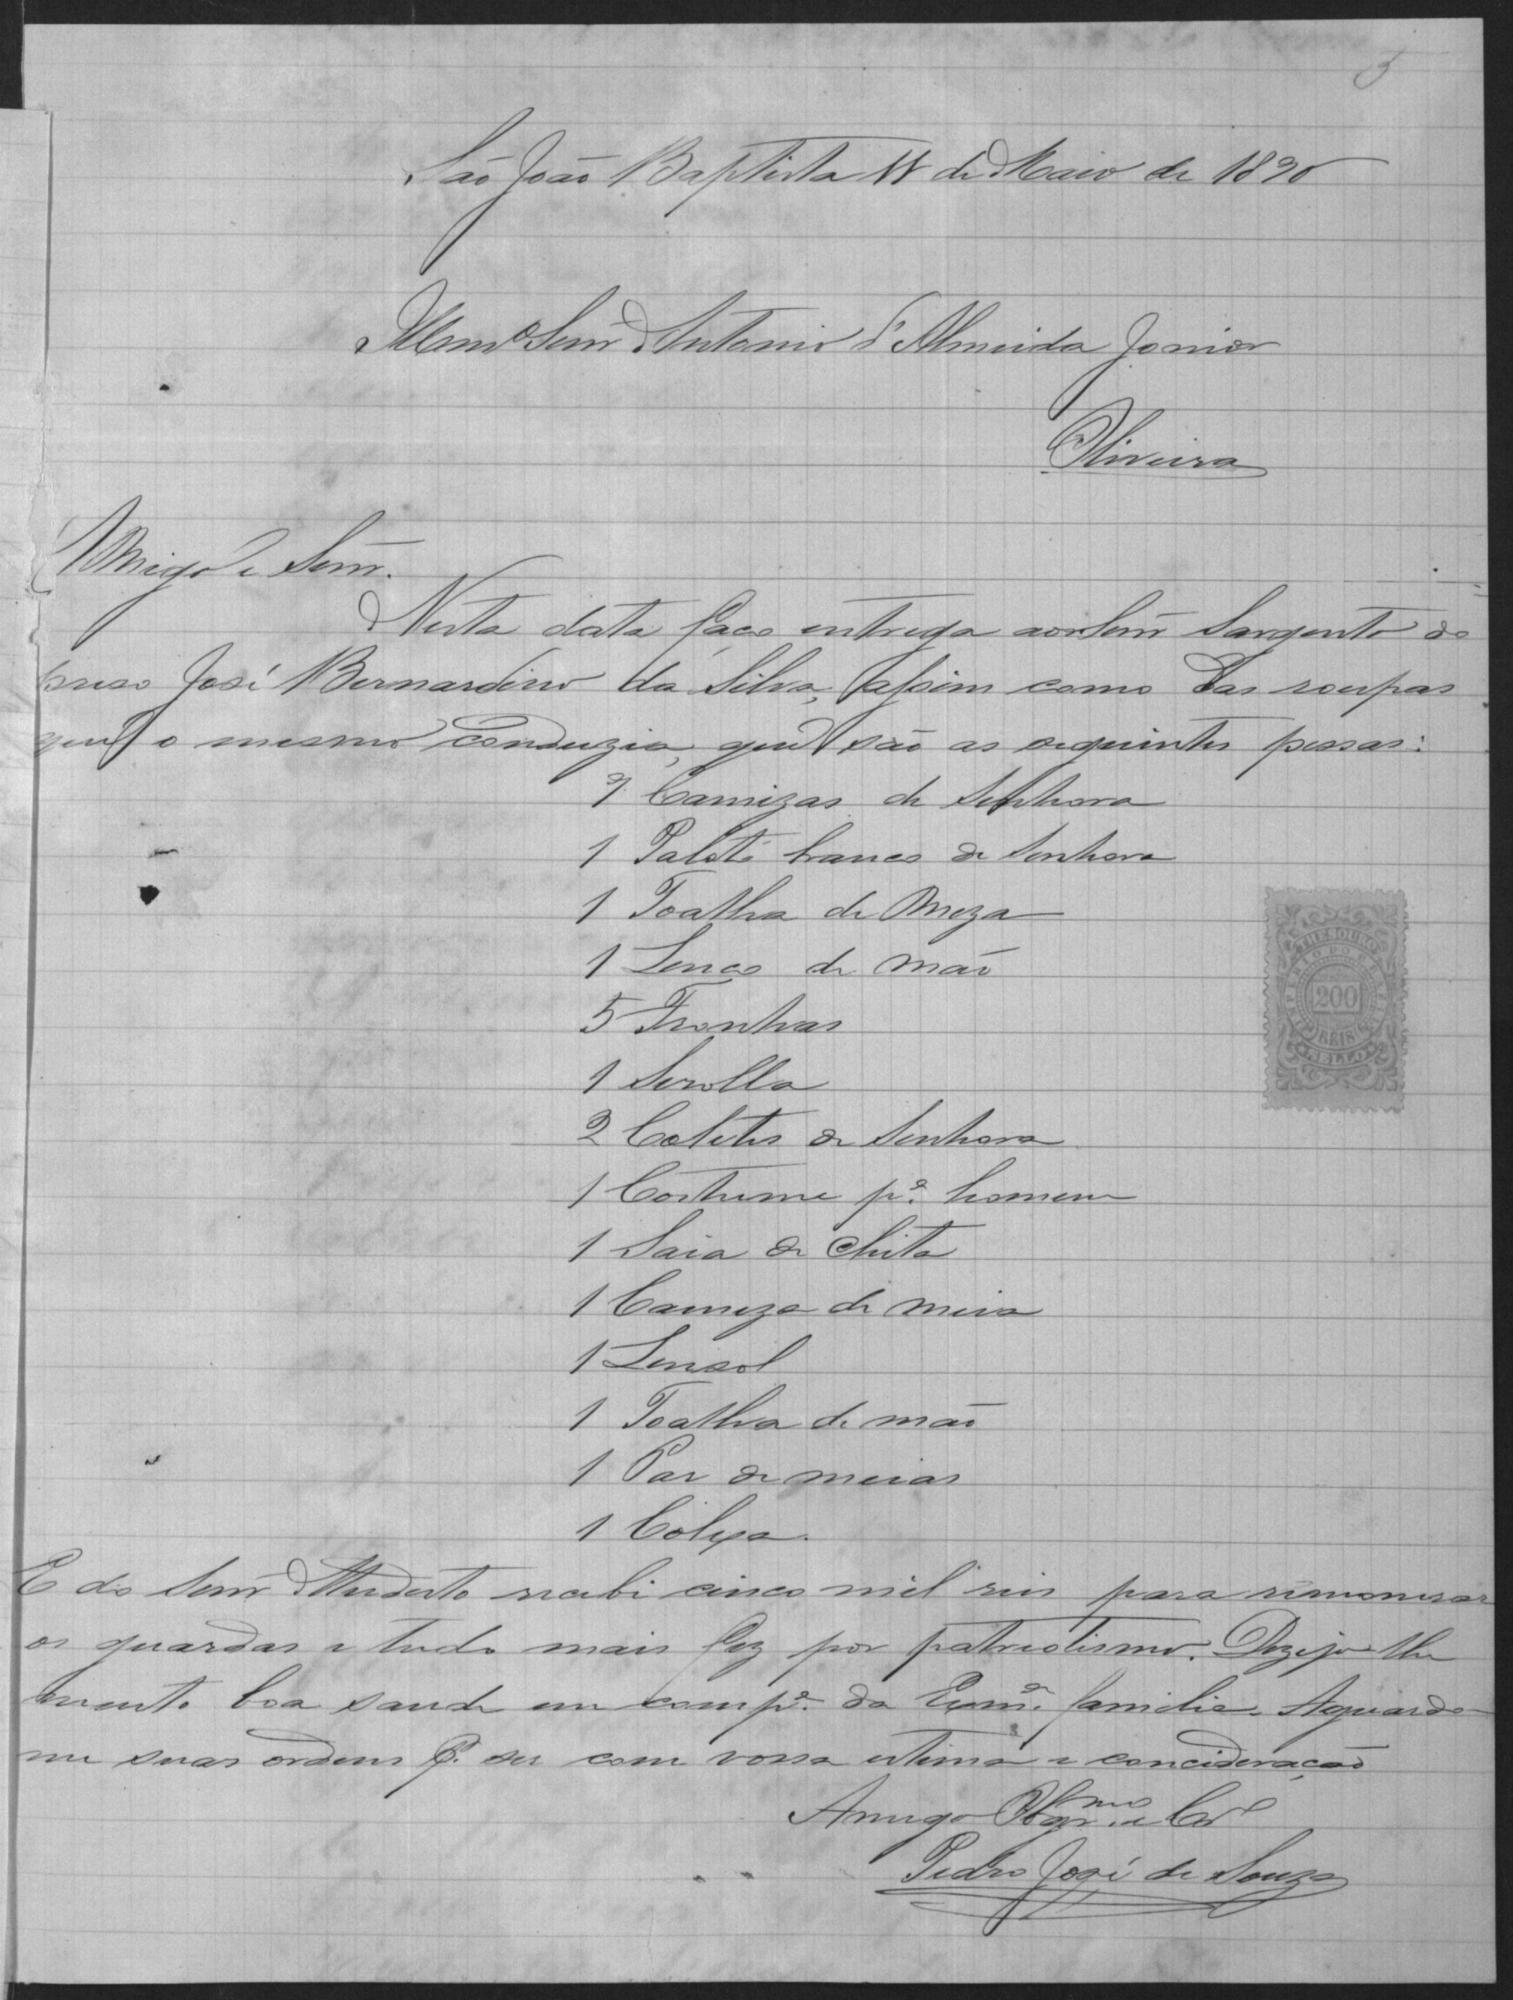 5
São João Baptista 11 de Maio de 1890
Illmo Senr Antonio d'Almeida Junior
Oliveira
Amigo e Senr.
Nesta data faço entrega ao Senr Sargento do
preso José Bernardino da Silva, assim como das roupas
que o mesmo conduzia, que são as seguintes pessas:
Camizas de Senhora
1 Paletó branco de Senhora
1 Toalha de Meza
1 Lenço de mão
5 Fronhas
1 Serolla
2 Coletes de Senhora
1 Costume pa. homem
1 Saia de Chita
1 Camiza de meia
1 Lensol
1 Toalha de mão
1 Par de meias
1 Colxa.
E do Senr Modesto recebi cinco mil reis para remonerar
os guardas e tudo mais fiz por patriotismo. Dezejo-lhe
boa saude em compa. da Exma. familia. Aguardo-
me suas ordens P. ser com vossa estima e concideração
Amigo Obgrmo. e Cro
Pedro José de Souza
THESOURO
IMPERIO DO BRAZIL
200
REIS
SELLO